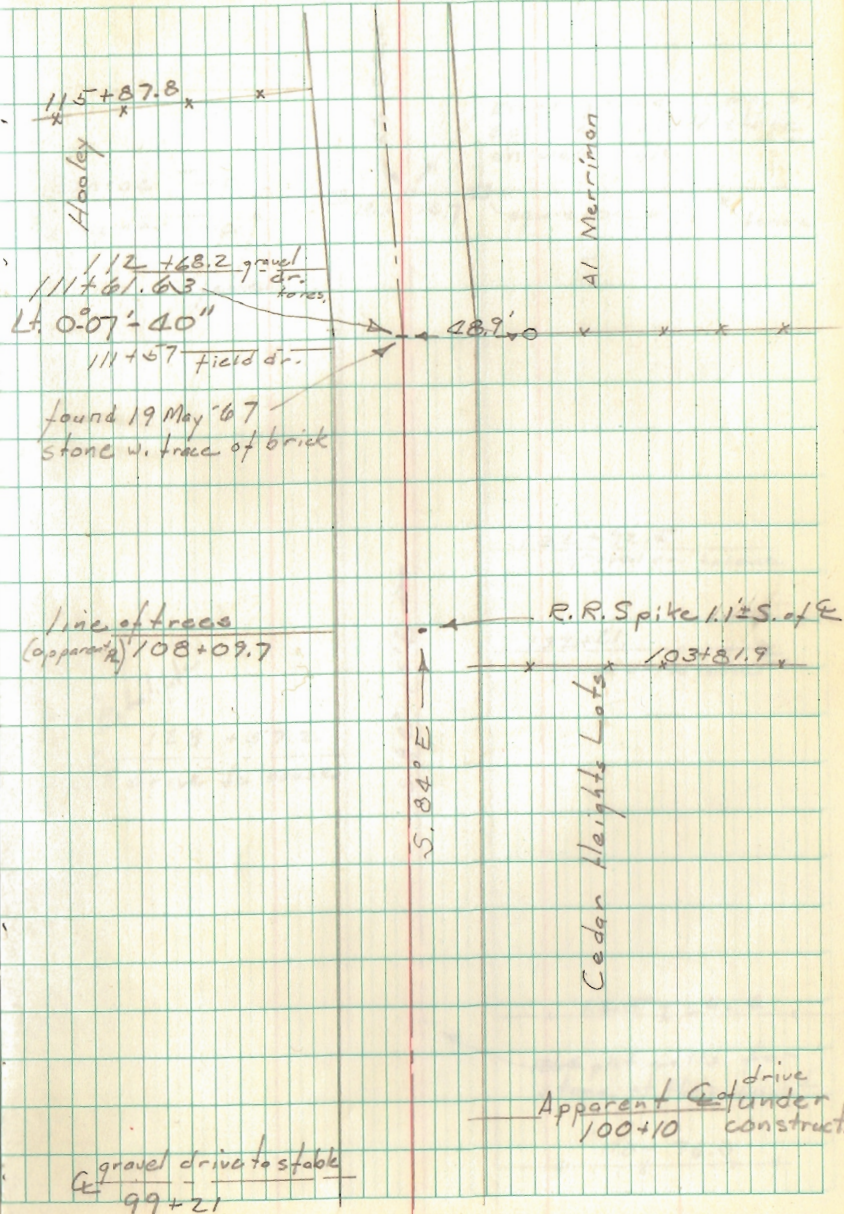 115+87.8
Hooley
Al Merriman
112+68.2 gravel dr. to res.
111+61.63
Lt. 0°07'-40"
111+57 field dr.
48.9'
found 19 May '67
stone w. trace of brick
line of trees
(apparent ⅊) 108+09.7
R.R. Spike 1.1'± S. of ℄
103+81.9
S. 84° E
Cedar Heights Lots
Apparent ℄ of drive
under
100+10 construct
℄ gravel drive to stable
99+21